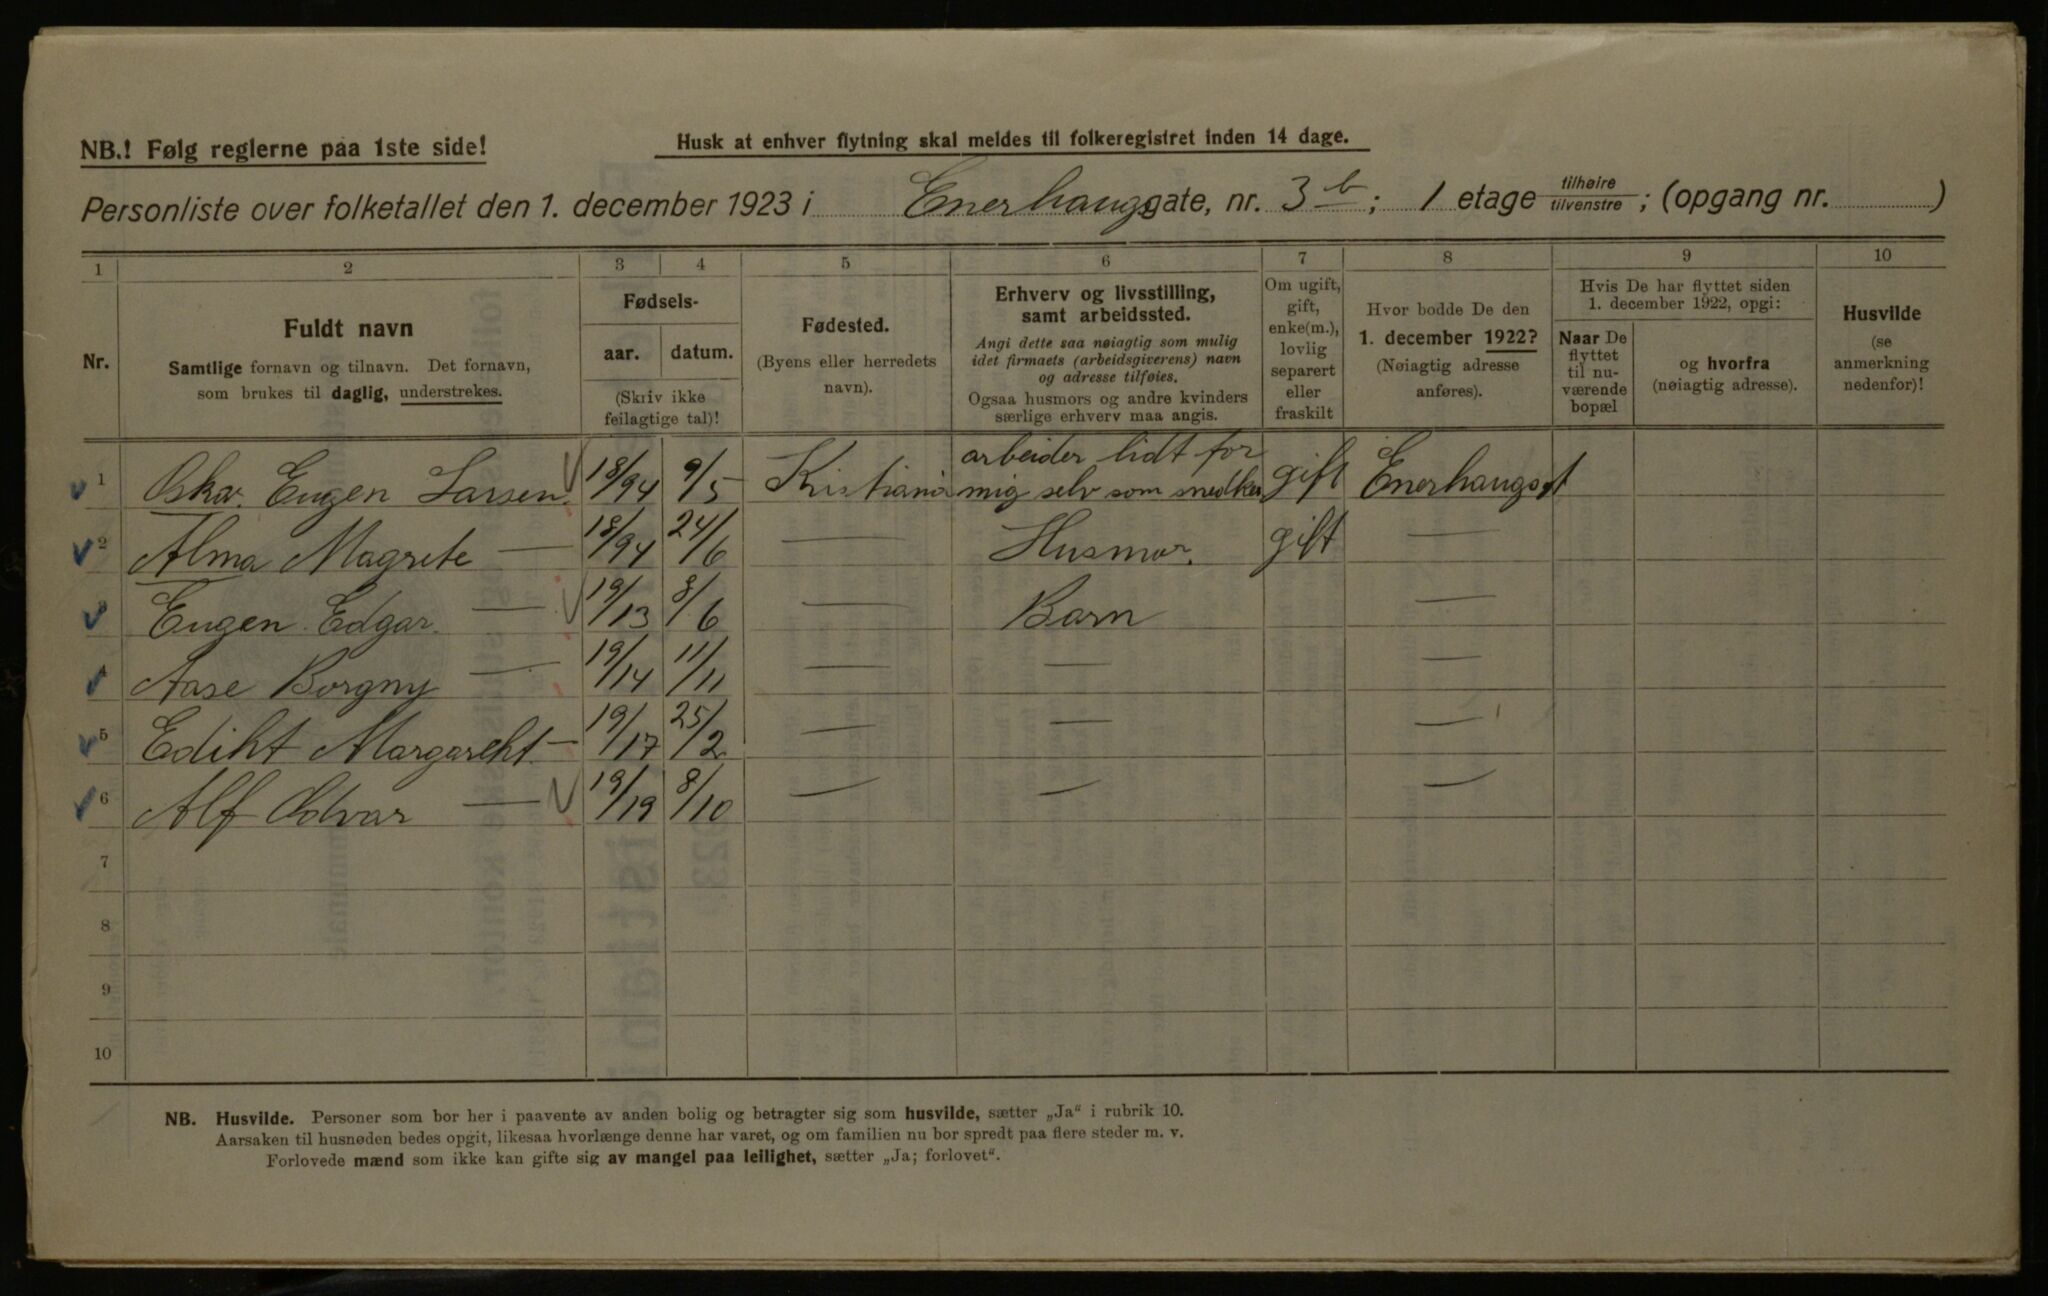 NB.! Følg reglerne paa 1ste side!
Husk at enhver flytning skal meldes til folkeregistret inden 14 dage.
Personliste over folketallet den 1. december 1923 i Enerhaugsgate, nr. 3 b; 1 etage tilhøire tilvenstre; (opgang nr. )
1 2 3 4 5 6 7 8 9 10
Nr.
Fuldt navn
Samtlige fornavn og tilnavn. Det fornavn,
som brukes til daglig, understrekes.
Fødsels-
aar. datum.
(Skriv ikke
feilagtige tal)!
Fødested.
(Byens eller herredets
navn).
Erhverv og livsstilling,
samt arbeidssted.
Angi dette saa nøiagtig som mulig
idet firmaets (arbeidsgiverens) navn
og adresse tilføies.
Ogsaa husmors og andre kvinders
særlige erhverv maa angis.
Om ugift,
gift,
enke(m.),
lovlig
separert
eller
fraskilt
Hvor bodde De den
1. december 1922?
(Nøiagtig adresse
anføres).
Hvis De har flyttet siden
1. december 1922, opgi:
Naar De
flyttet
til nu-
værende
bopæl
og hvorfra
(nøiagtig adresse).
Husvilde
(se
anmerkning
nedenfor)!
1 Oskar Eugen Larsen 18/94 9/5 Kristiania arbeider lidt for
mig selv som snedker gift Enerhaugsgt
2 Alma Magrete — 18/94 24/6 — Husmor. gift —
3 Eugen Edgar — 19/13 8/6 — Barn —
4 Aase Borgny — 19/14 11/11 — — —
5 Ediht Margareht — 19/17 25/2 — — —
6 Alf Odvar — 19/19 8/10 — — —
7
8
9
10
NB. Husvilde. Personer som bor her i paavente av anden bolig og betragter sig som husvilde, sætter „Ja“ i rubrik 10.
Aarsaken til husnøden bedes opgit, likesaa hvorlænge denne har varet, og om familien nu bor spredt paa flere steder m. v.
Forlovede mænd som ikke kan gifte sig av mangel paa leilighet, sætter „Ja; forlovet“.